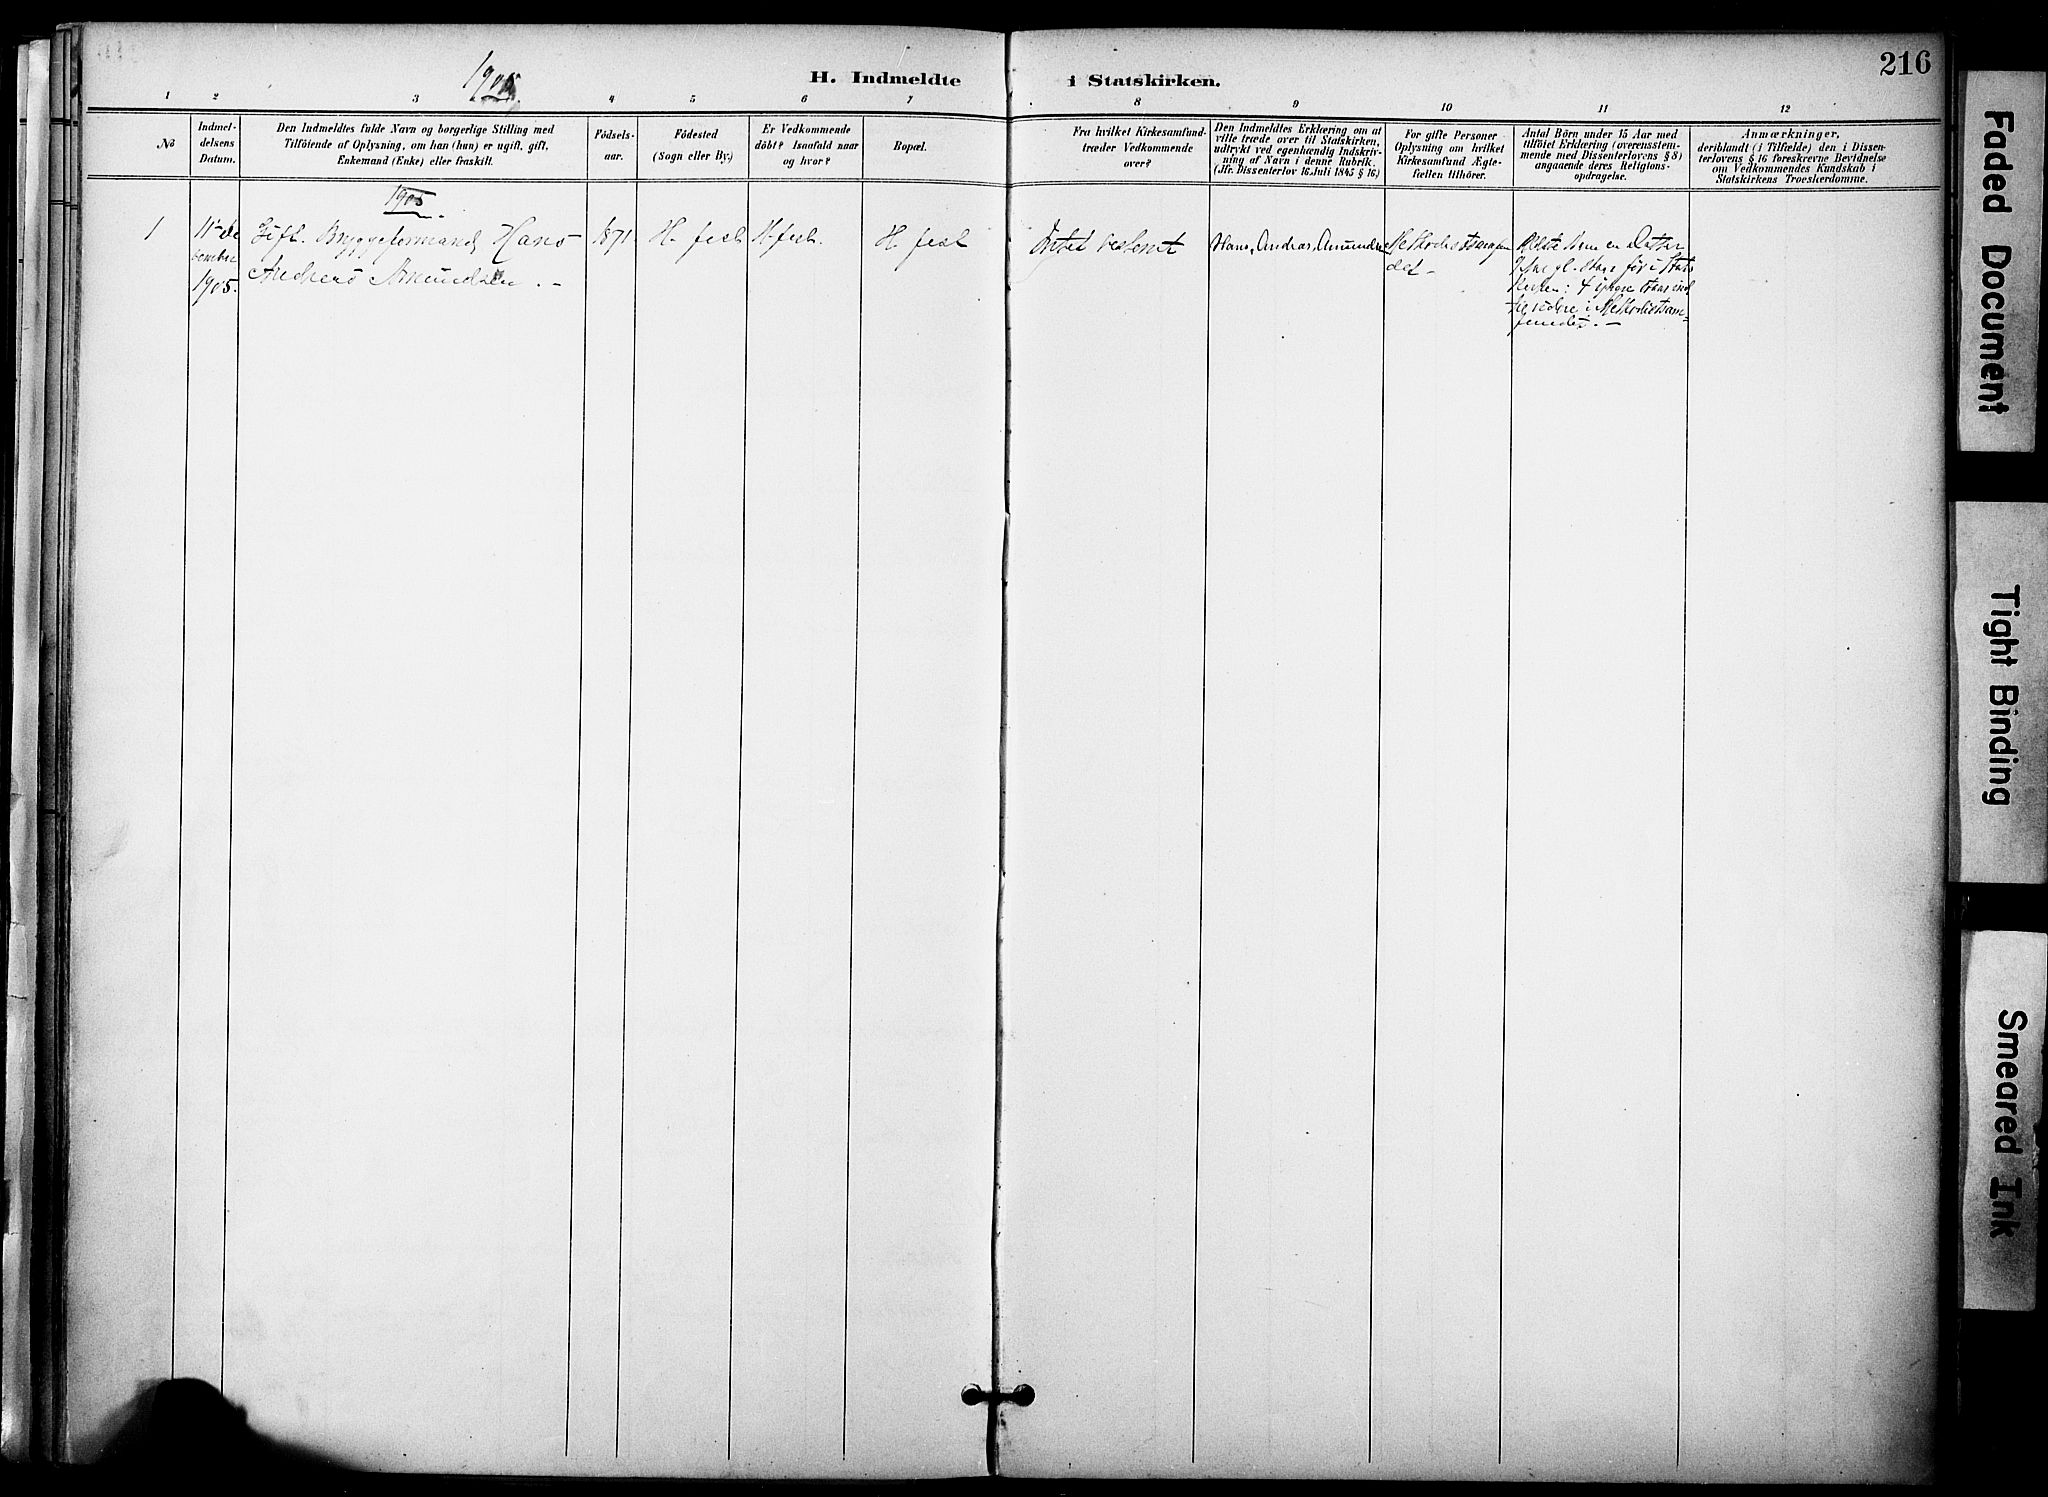 216
1905
H. Indmeldte i Statskirken.
1 2 3 4 5 6 7 8 9 10 11 12
No
Indmel-
delsens
Datum.
Den Indmeldtes fulde Navn og borgerlige Stilling med
Tilföiende af Oplysning, om han (hun) er ugift, gift,
Enkemand (Enke) eller fraskilt.
Födsels-
aar.
Födested
(Sogn eller By.)
Er Vedkommende
döbt? Isaafald naar
og hvor?
Bopæl.
Fra hvilket Kirkesamfund
træder Vedkommende
over?
Den Indmeldtes Erklæring om at
ville træde over til Statskirken,
udtrykt ved egenhændig Indskriv-
ning af Navn i denne Rubrik.
(Jfr. Dissenterlov 16 Juli 1845 § 16.)
For gifte Personer
Oplysning om hvilket
Kirkesamfund Ægte-
fællen tilhörer.
Antal Börn under 15 Aar med
tilföiet Erklæring (overensstem-
mende med Dissenterlovens § 8)
angaaende deres Religions-
opdragelse.
Anmærkninger,
deriblandt (i Tilfælde) den i Dissen-
terlovens § 16 foreskrevne Bevidnelse
om Vedkommendes Kundskab i
Statskirkens Troeslærdomme.
1905
1
11 de
cember
1905.
Gift. Bryggeformand Hans
Anders Amundsen. –
1871
H. fest
H. fest.
H fest
Intet bestemt
Hans, Andras, Amundsen
Methodistsamfun
det –
Ældste Barn en Datter
9 Aar gl. staar før i Stats
kirken: 4 yngre staar ind
i Methodistsam=
fundet. –
Faded Document
Tight Binding
Smeared Ink